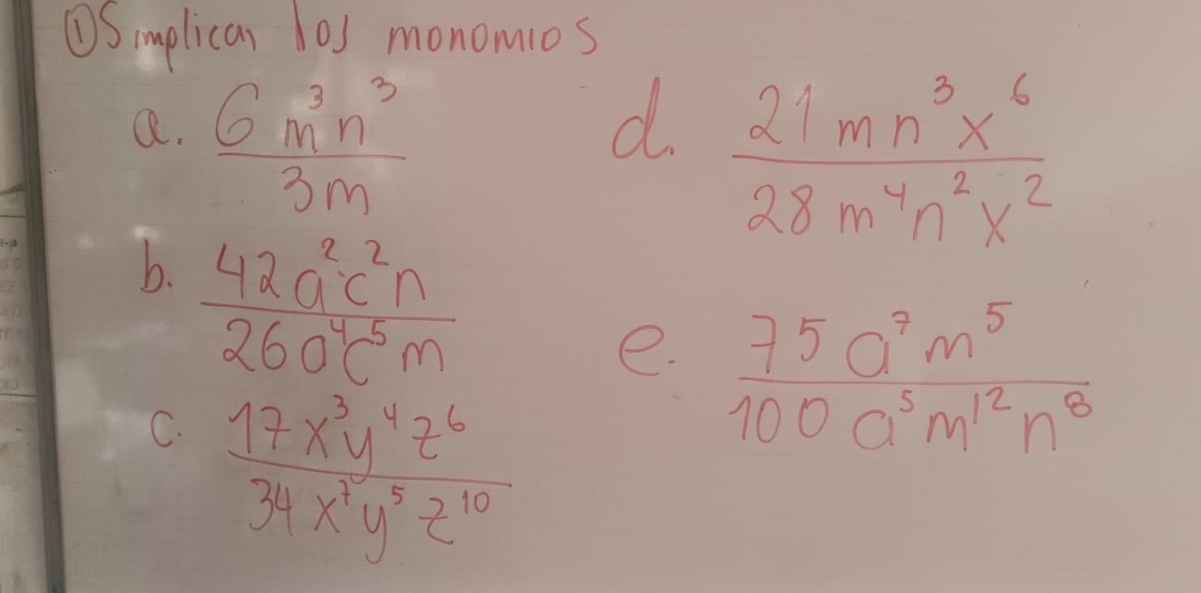 ① Simplican los monomios
a. 6 m³ n³ / 3m
b. 42 a² c² n / 26 a⁴ c⁵ m
c. 17 x³ y⁴ z⁶ / 34 x⁷ y⁵ z¹⁰
d. 21 m n³ x⁶ / 28 m⁴ n² x²
e. 75 a⁷ m⁵ / 100 a⁵ m¹² n⁸